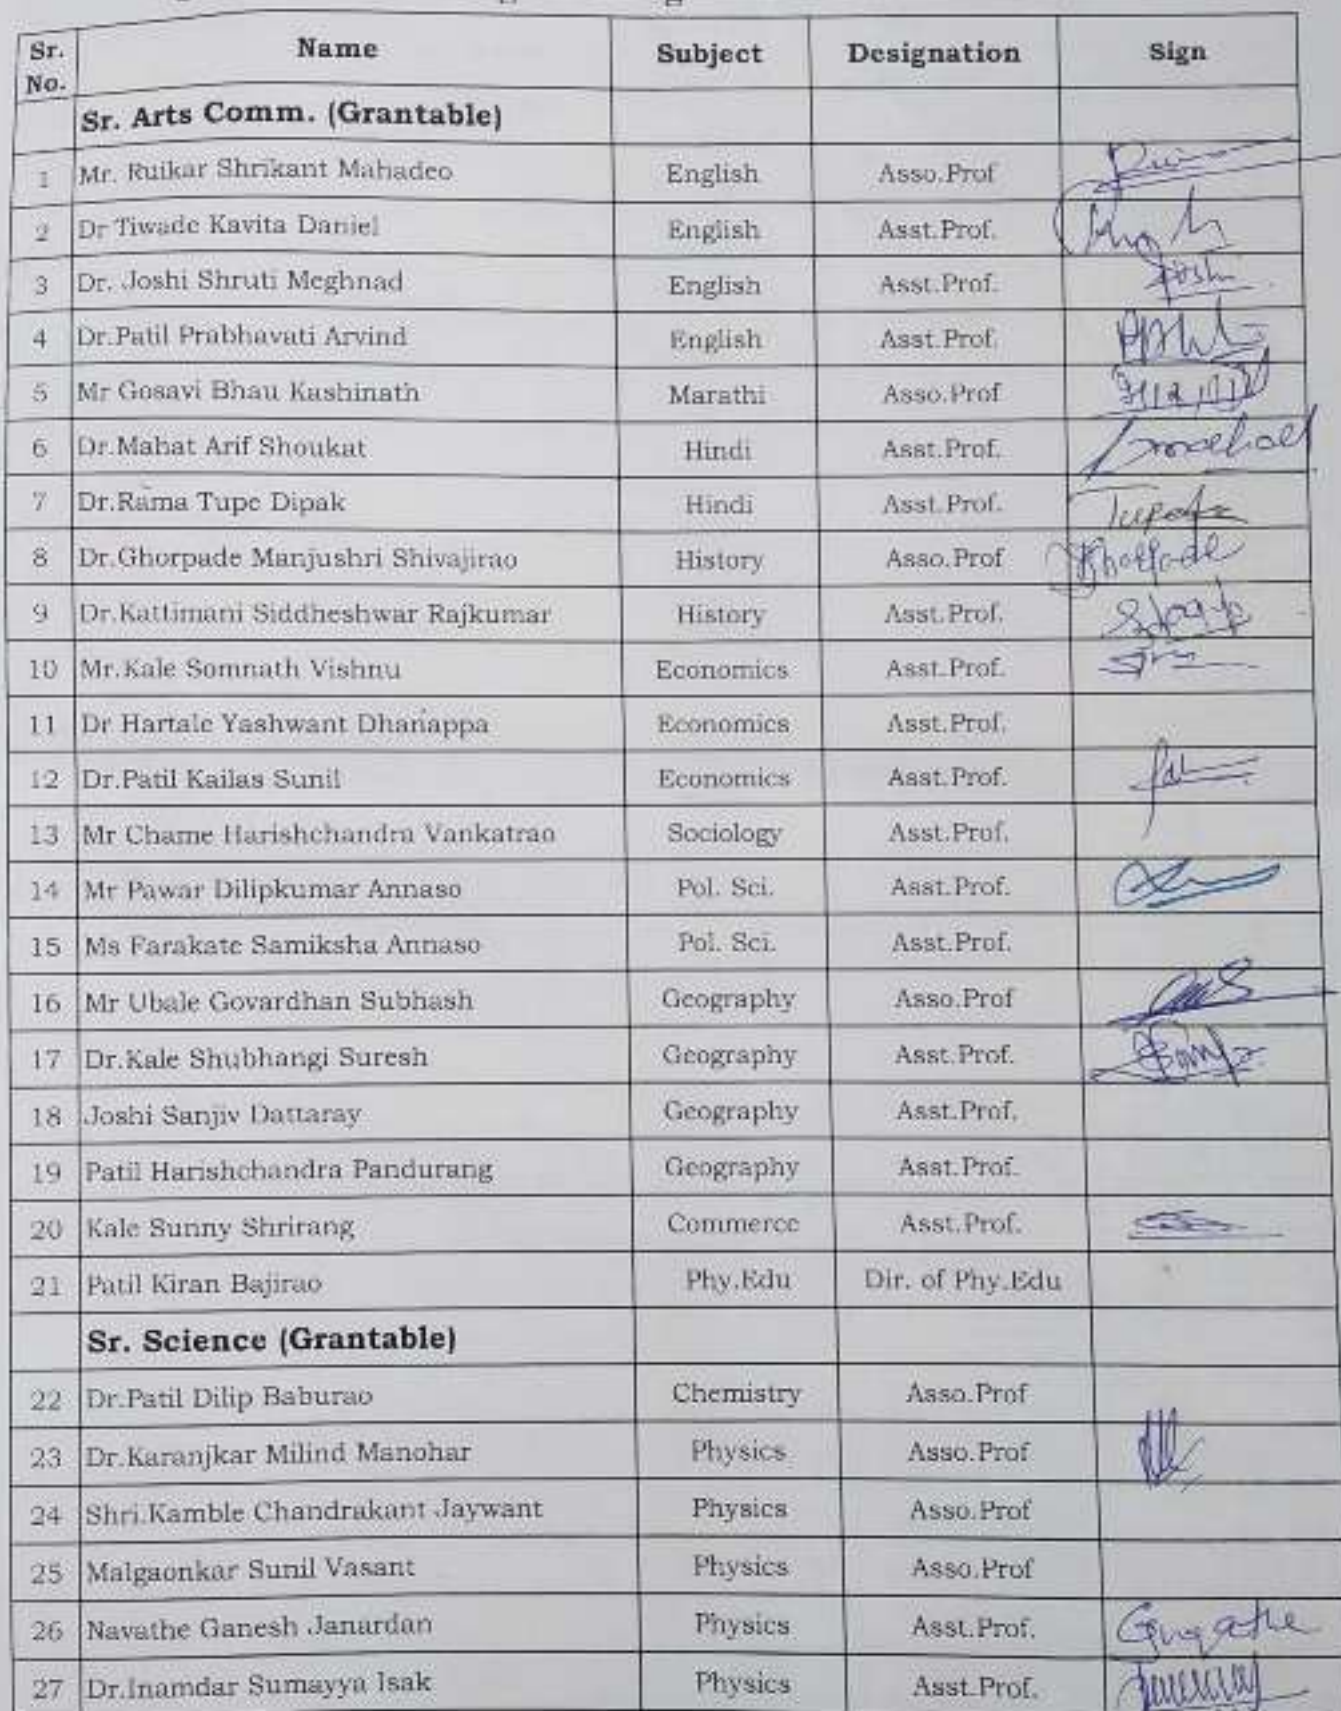 Sr. No. Name Subject Designation Sign
Sr. Arts Comm. (Grantable)
1 Mr. Ruikar Shrikant Mahadeo English Asso.Prof
2 Dr Tiwade Kavita Daniel English Asst.Prof.
3 Dr. Joshi Shruti Meghnad English Asst.Prof. Joshi
4 Dr.Patil Prabhavati Arvind English Asst.Prof.
5 Mr Gosavi Bhau Kashinath Marathi Asso.Prof
6 Dr.Mahat Arif Shoukat Hindi Asst.Prof.
7 Dr.Rama Tupe Dipak Hindi Asst.Prof.
8 Dr.Ghorpade Manjushri Shivajirao History Asso.Prof Ghorpade
9 Dr.Kattimani Siddheshwar Rajkumar History Asst.Prof.
10 Mr.Kale Somnath Vishnu Economics Asst.Prof.
11 Dr Hartale Yashwant Dhanappa Economics Asst.Prof.
12 Dr.Patil Kailas Sunil Economics Asst.Prof.
13 Mr Chame Harishchandra Vankatrao Sociology Asst.Prof.
14 Mr Pawar Dilipkumar Annaso Pol. Sci. Asst.Prof.
15 Ms Farakate Samiksha Annaso Pol. Sci. Asst.Prof.
16 Mr Ubale Govardhan Subhash Geography Asso.Prof
17 Dr.Kale Shubhangi Suresh Geography Asst.Prof.
18 Joshi Sanjiv Dattaray Geography Asst.Prof.
19 Patil Harishchandra Pandurang Geography Asst.Prof.
20 Kale Sunny Shrirang Commerce Asst.Prof.
21 Patil Kiran Bajirao Phy.Edu Dir. of Phy.Edu
Sr. Science (Grantable)
22 Dr.Patil Dilip Baburao Chemistry Asso.Prof
23 Dr.Karanjkar Milind Manohar Physics Asso.Prof
24 Shri.Kamble Chandrakant Jaywant Physics Asso.Prof
25 Malgaonkar Sunil Vasant Physics Asso.Prof
26 Navathe Ganesh Janardan Physics Asst.Prof.
27 Dr.Inamdar Sumayya Isak Physics Asst.Prof.